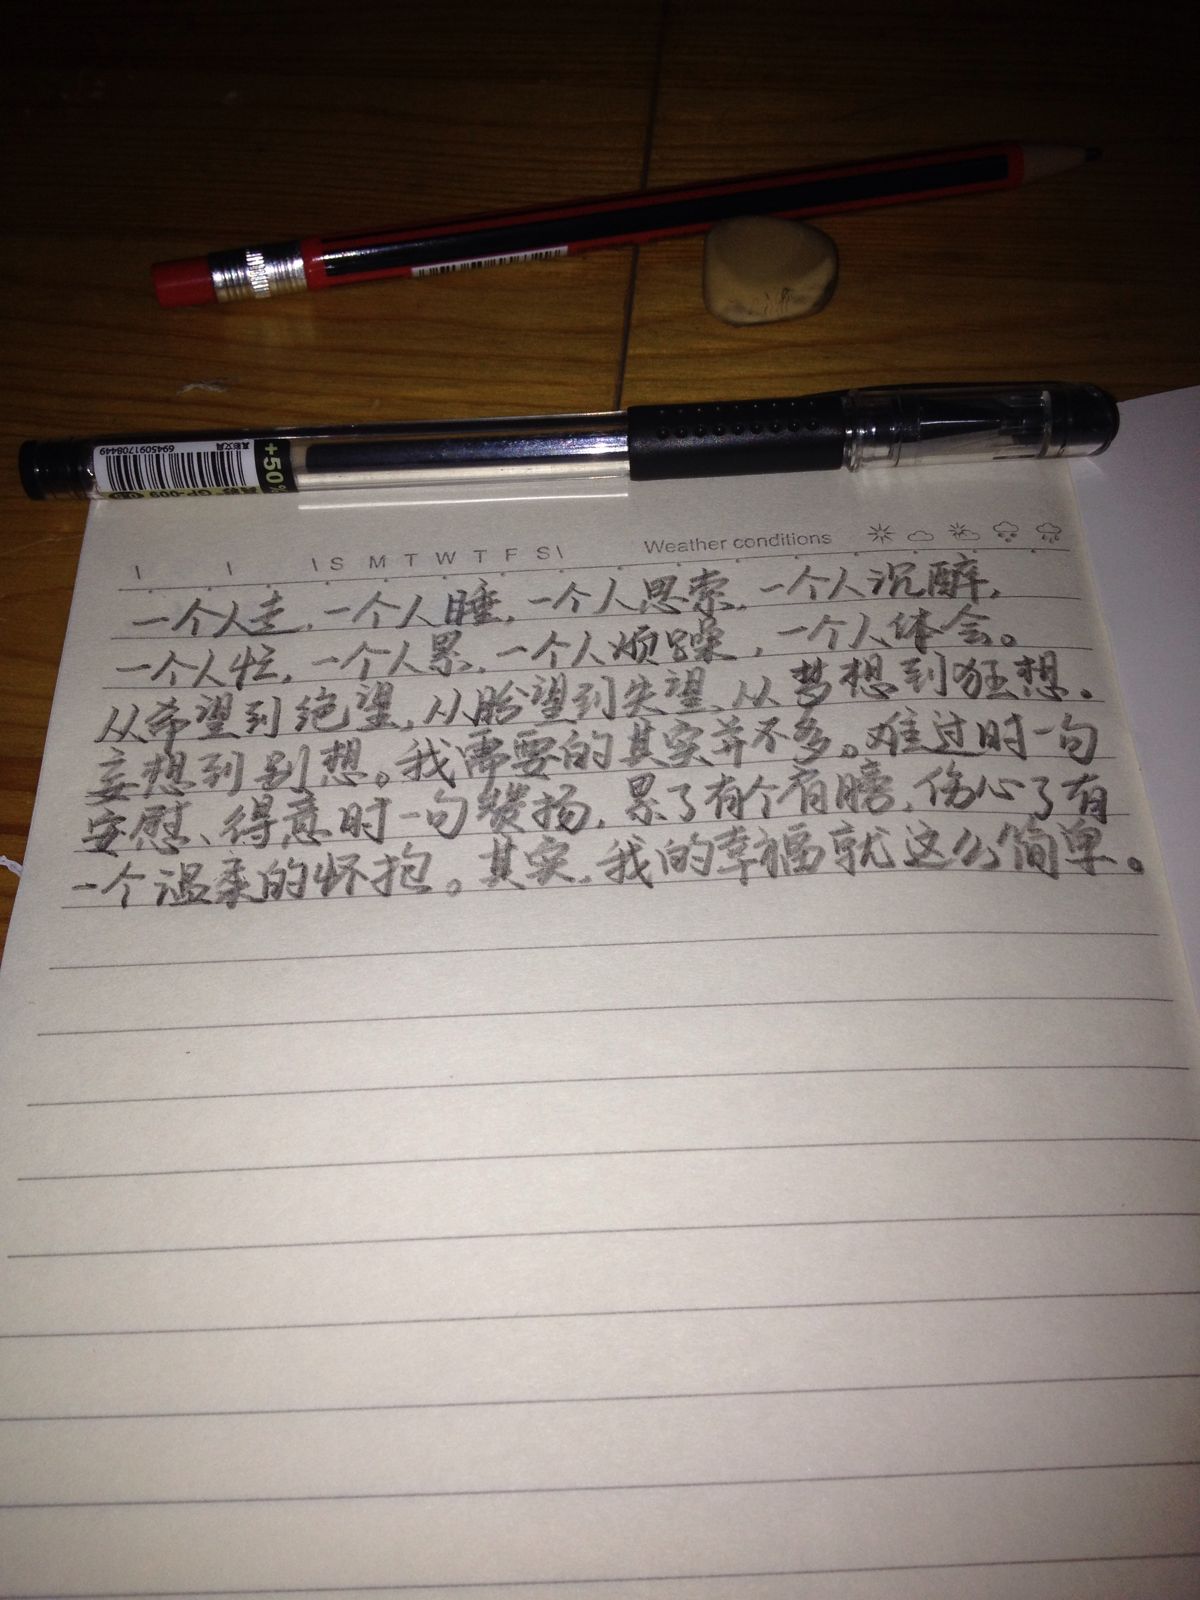 +50%
6945091708449
GP-009
I I I S M T W T F S I Weather conditions
一个人走，一个人睡，一个人思索，一个人沉醉，
一个人忙，一个人累，一个人烦躁，一个人体会。
从希望到绝望，从盼望到失望、从梦想到狂想。
妄想到别想。我需要的其实并不多。难过时一句
安慰、得意时一句赞扬，累了有个肩膀，伤心了有
一个温柔的怀抱。其实，我的幸福就这么简单。